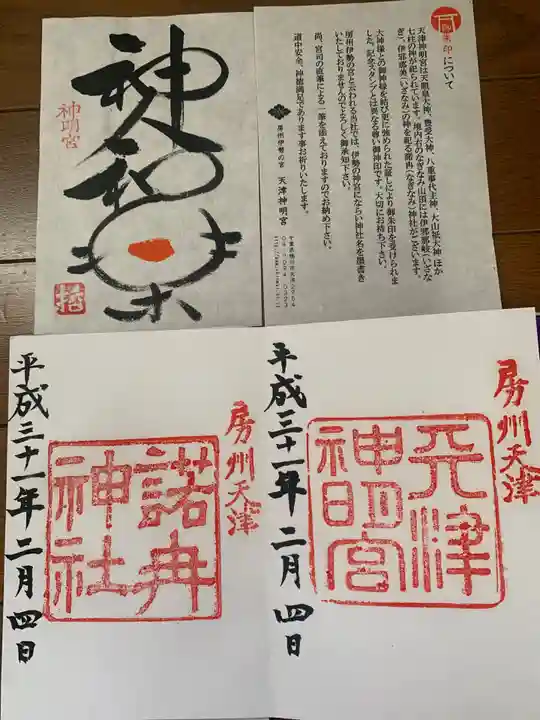 神和楽
神明宮
御朱印について
天津神明宮は天照皇大神、豊受大神、八重事代主神、大山祇大神ほか
七柱の神が祀られています。境内右のなぎなみ山頂には伊邪那岐(いざな
ぎ)、伊邪那美(いざなみ)の神を祀る諾冉(なぎなみ)神社がございます。
大神様との御神縁を結び更に強められた証しにより御朱印を受けられま
した。記念スタンプとは異なる尊い御神印です。大切にお持ち下さい。
房州伊勢の宮と云われる当社では、伊勢の神宮にならい神社名を墨書き
いたしておりませんのでよろしく御承知下さい。
尚、宮司の直筆による一筆を添えておりますのでお納め下さい。
道中安全、神徳満足であります事お祈りいたします。
房州伊勢の宮 天津神明宮
房州天津
諾冉
神社
平成三十一年二月四日
房州天津
天津
神明宮
平成三十一年二月四日